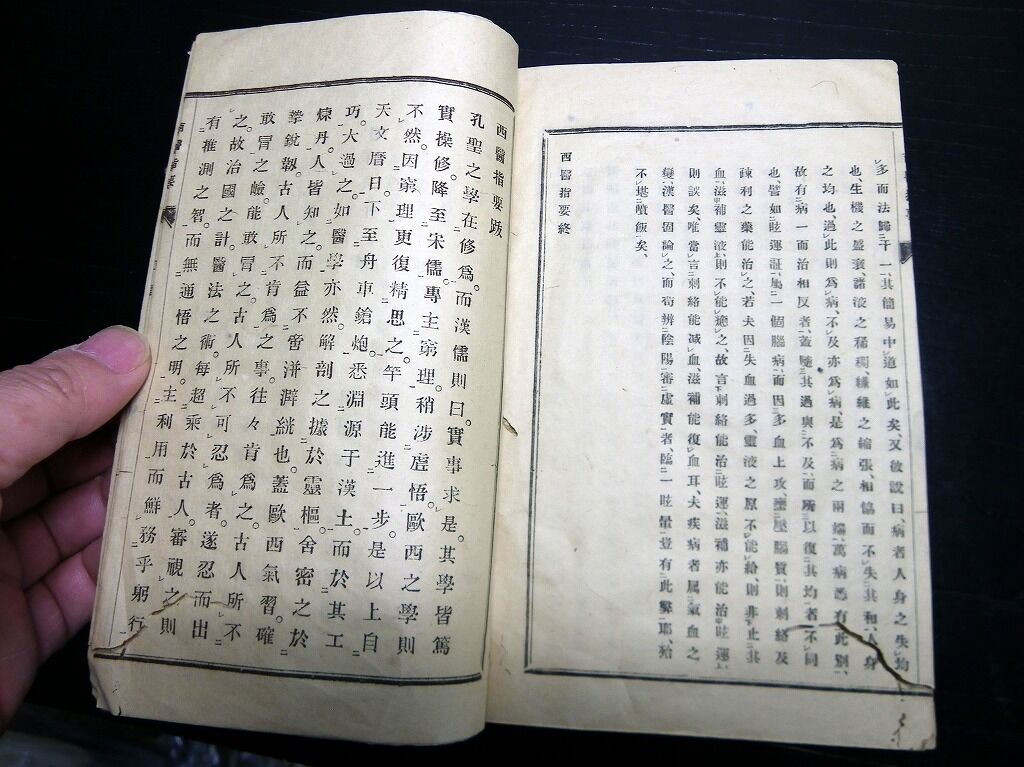 多而法歸于一、其簡易中道如此矣、又彼說曰、病者人身之失均
也、生機之盛衰諸液之稀稠、纎維之縮張、相恊而不失其和、人身
之均也、過此則爲病、不及亦爲病、是爲病之兩端、萬病悉有此別、
故有病一而治相反者、蓋隨其過與不及、而所以復其均者不同
也、譬如眩運証、屬一個腦病、而因多血上攻、壅壓腦質、則刺絡及
疎利之藥能治之、若夫因失血過多、靈液之原不能給、則非止其
血、滋補靈液、則不能癒之、故言刺絡能治眩運、滋補亦能治眩運、
則誤矣、唯當言刺絡能減血、滋補能復血耳、夫疾病者属氣血之
變、漢醫固論之、而苟辨陰陽審虛實者、臨一眩暈豈有此弊耶、殆
不堪噴飯矣、
西醫指要終
西醫指要跋
孔聖之學在修爲。而漢儒則曰。實事求是。其學皆篤
實操修。降至宋儒。專主窮理。稍涉虛悟。歐西之學則
不然。因窮理更復精思之。竿頭能進一步。是以上自
天文曆日。下至舟車鎗炮。悉淵源于漢土。而於其工
巧。大過之。如醫學亦然。解剖之據於靈樞。舍密之於
煉丹。人皆知之。而益不啻洴澼絖也。蓋歐西氣習。確
摯銳韌。古人所不肯爲之事。往々肯爲之。古人所不
敢冐之嶮。能敢冐之。古人所不可忍爲者。遂忍而出
之。故治國之計。醫法之術。每超乘於古人。審視之則
有推測之智。而無通悟之明。主利用而鮮務乎躬行